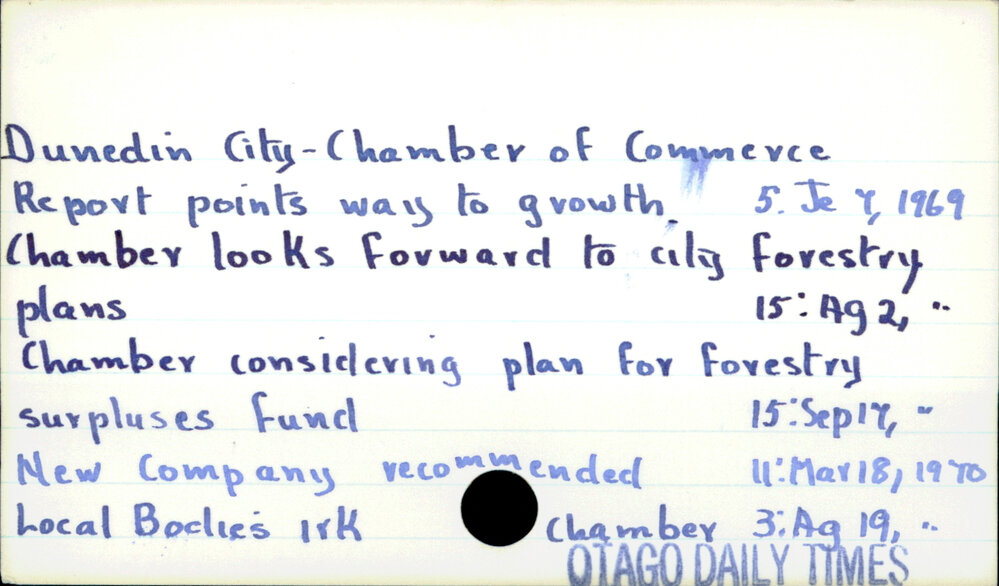 Dunedin City - Chamber of Commerce
Report points way to growth. 5. Je 7, 1969
Chamber looks forward to city forestry
plans 15: Ag 2, "
Chamber considering plan for forestry
surpluses fund 15: Sep 17, "
New Company recommended 11: Mar 18, 1970
Local Bodies irk Chamber 3: Ag 19, "
OTAGO DAILY TIMES